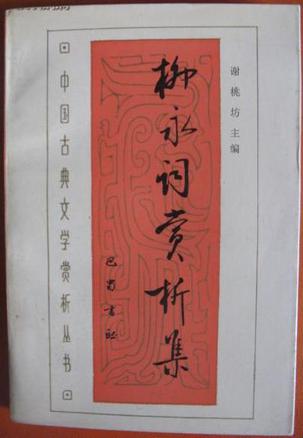 谢桃坊主编
柳永词赏析集
巴蜀书社
中国古典文学赏析丛书